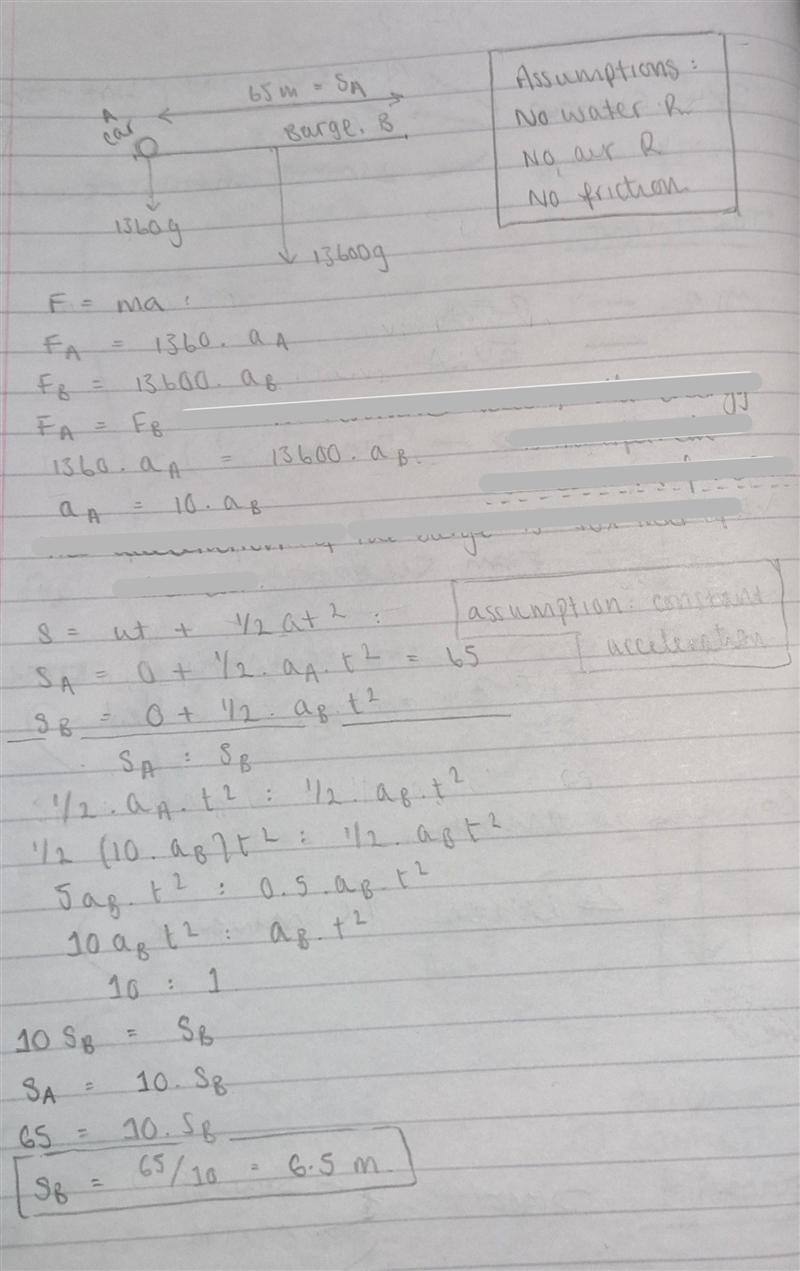 65 m = SA
A
car
Barge. B
1360g
13600g
Assumptions:
No water R.
No air R
No friction.
F = ma :
FA = 1360. aA
FB = 13600. aB
FA = FB
1360. aA = 13600. aB.
aA = 10. aB
S = ut + 1/2 at² :
assumption: constant
acceleration
SA = 0 + 1/2. aA. t² = 65
SB = 0 + 1/2. aB. t²
SA : SB
1/2. aA. t² : 1/2. aB. t²
1/2 (10. aB)t² : 1/2. aB t²
5aB. t² : 0.5. aB. t²
10 aB t² : aB. t²
10 : 1
10 SB = SB
SA = 10. SB
65 = 10. SB
SB = 65/10 = 6.5 m.